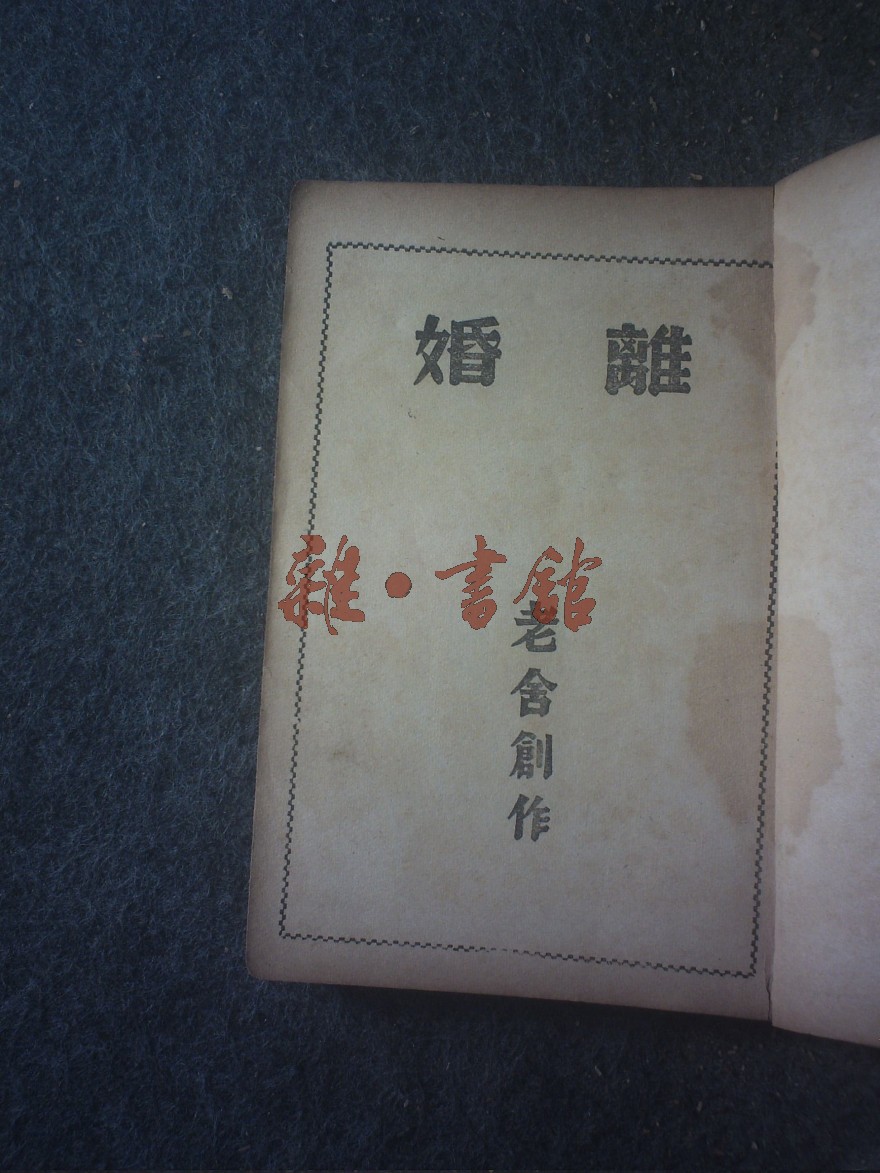 離婚
老舍創作
雜·書館